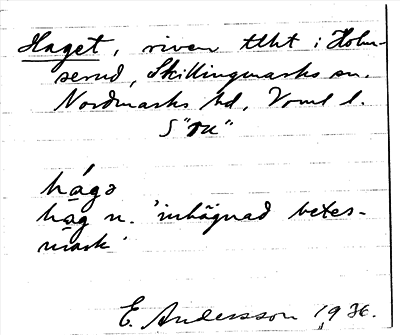 Haget, riven tlht i Holm-
serud, Skillingmarks sn.
Nordmarks hd, Vrml l.
hágə
hag n. 'inhägnad betes-
mark'
E. Andersson 1936.